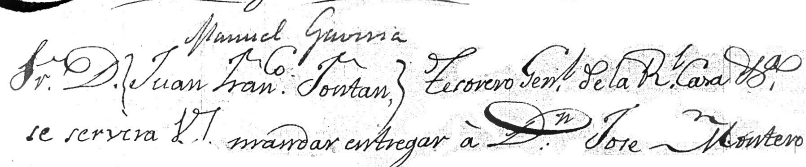 Manuel Guvina
Sr. D. {Juan Franco. Fontan,} Tesorero Genl. de la Rl. Casa &a.
se servira V. mandar entregar à Dn. Jose Montero